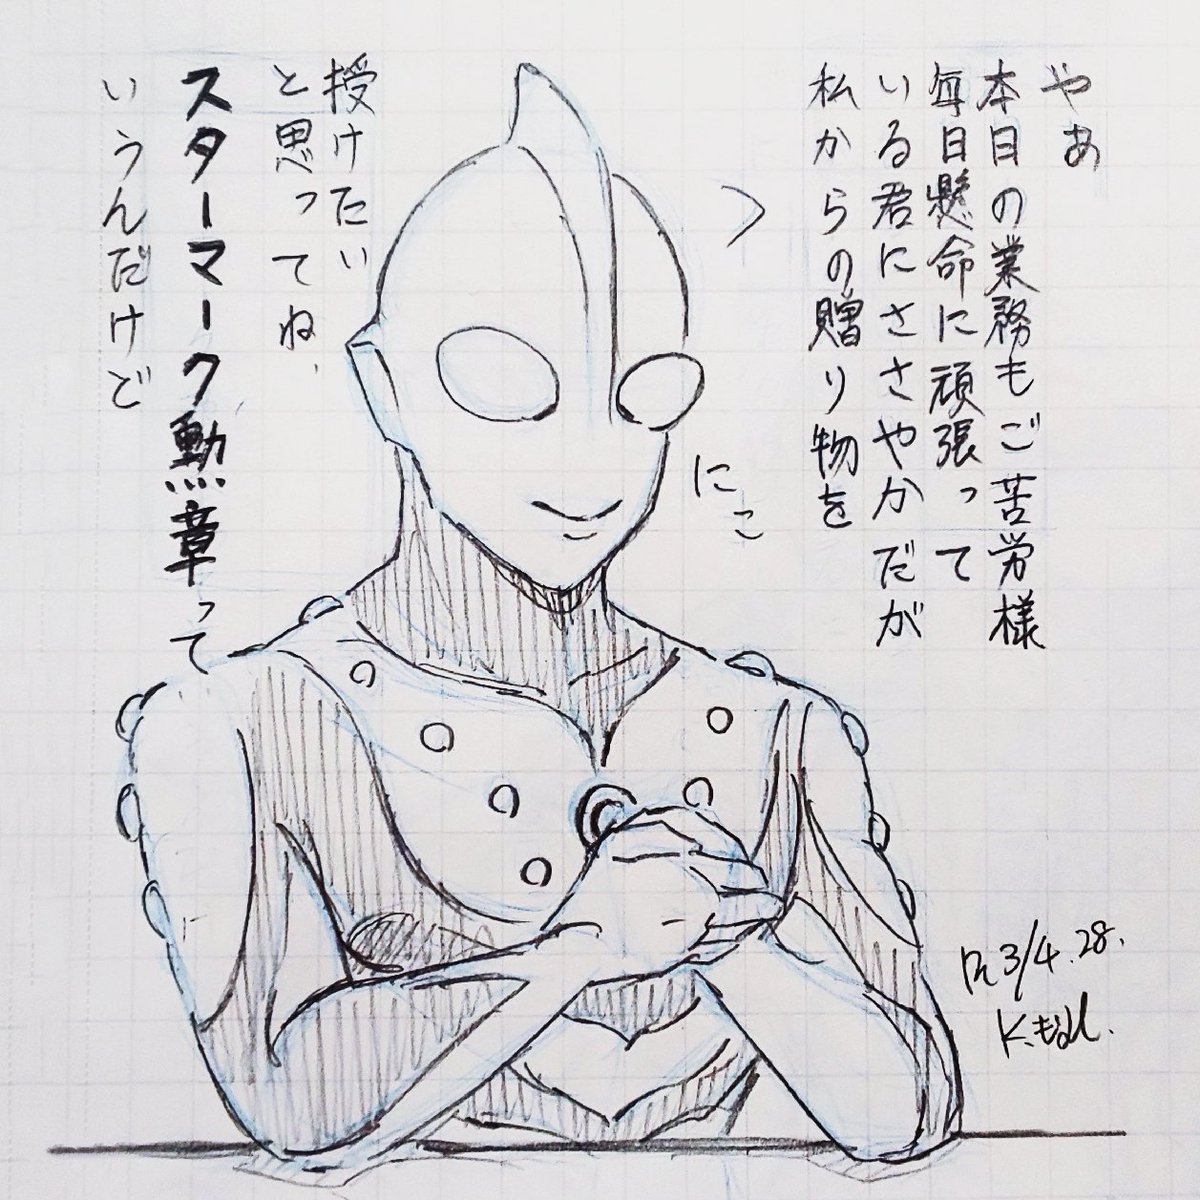 やあ
本日の業務もご苦労様
毎日懸命に頑張って
いる君にささやかだが
私からの贈り物を
にこ
授けたい
と思ってね、
スターマーク勲章って
いうんだけど
R3/4.28.